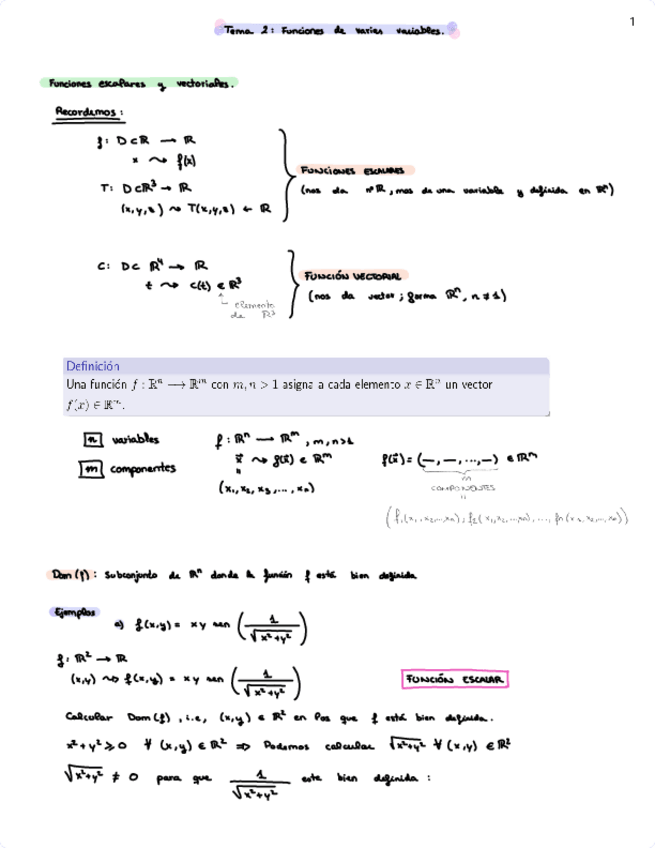 1
Tema 2: Funciones de varias variables.
Funciones escalares y vectoriales.
Recordemos:
f: D⊂ℝ → ℝ
x ⤳ f(x)
FUNCIONES ESCALARES
T: D⊂ℝ³ → ℝ
(nos da nº ℝ, mas de una variable y definida en ℝⁿ)
(x,y,z) ⤳ T(x,y,z) ← ℝ
C: D⊂ ℝ⁴ → ℝ
FUNCIÓN VECTORIAL
t ⤳ c(t) ∈ ℝ³
(nos da vector; forma ℝⁿ, n≠1)
elemento
de ℝ³
Definición
Una función f : ℝⁿ ⟶ ℝᵐ con m, n > 1 asigna a cada elemento x ∈ ℝⁿ un vector
f(x) ∈ ℝᵐ.
n variables
f: ℝⁿ → ℝᵐ, m,n>1
m componentes
x⃗ ⤳ f(x⃗) ∈ ℝᵐ
f(x⃗) = (—, —, ..., —) ∈ ℝᵐ
"
m
(x₁, x₂, x₃, ..., xₙ)
COMPONENTES
"
(f₁(x₁,x₂,...,xₙ), f₂(x₁,x₂,...,xₙ), ..., fₙ(x₁,x₂,...,xₙ))
Dom(f): Subconjunto de ℝⁿ donde la función f está bien definida
Ejemplos
a) f(x,y) = xy sen (1/√(x²+y²))
f: ℝ² → ℝ
(x,y) ⤳ f(x,y) = xy sen (1/√(x²+y²))
FUNCIÓN ESCALAR
Calcular Dom(f), i.e, (x,y) ∈ ℝ² en los que f está bien definida.
x²+y² ≥ 0 ∀ (x,y) ∈ ℝ² ⇒ Podemos calcular √(x²+y²) ∀ (x,y) ∈ ℝ²
√(x²+y²) ≠ 0 para que 1/√(x²+y²) este bien definida: